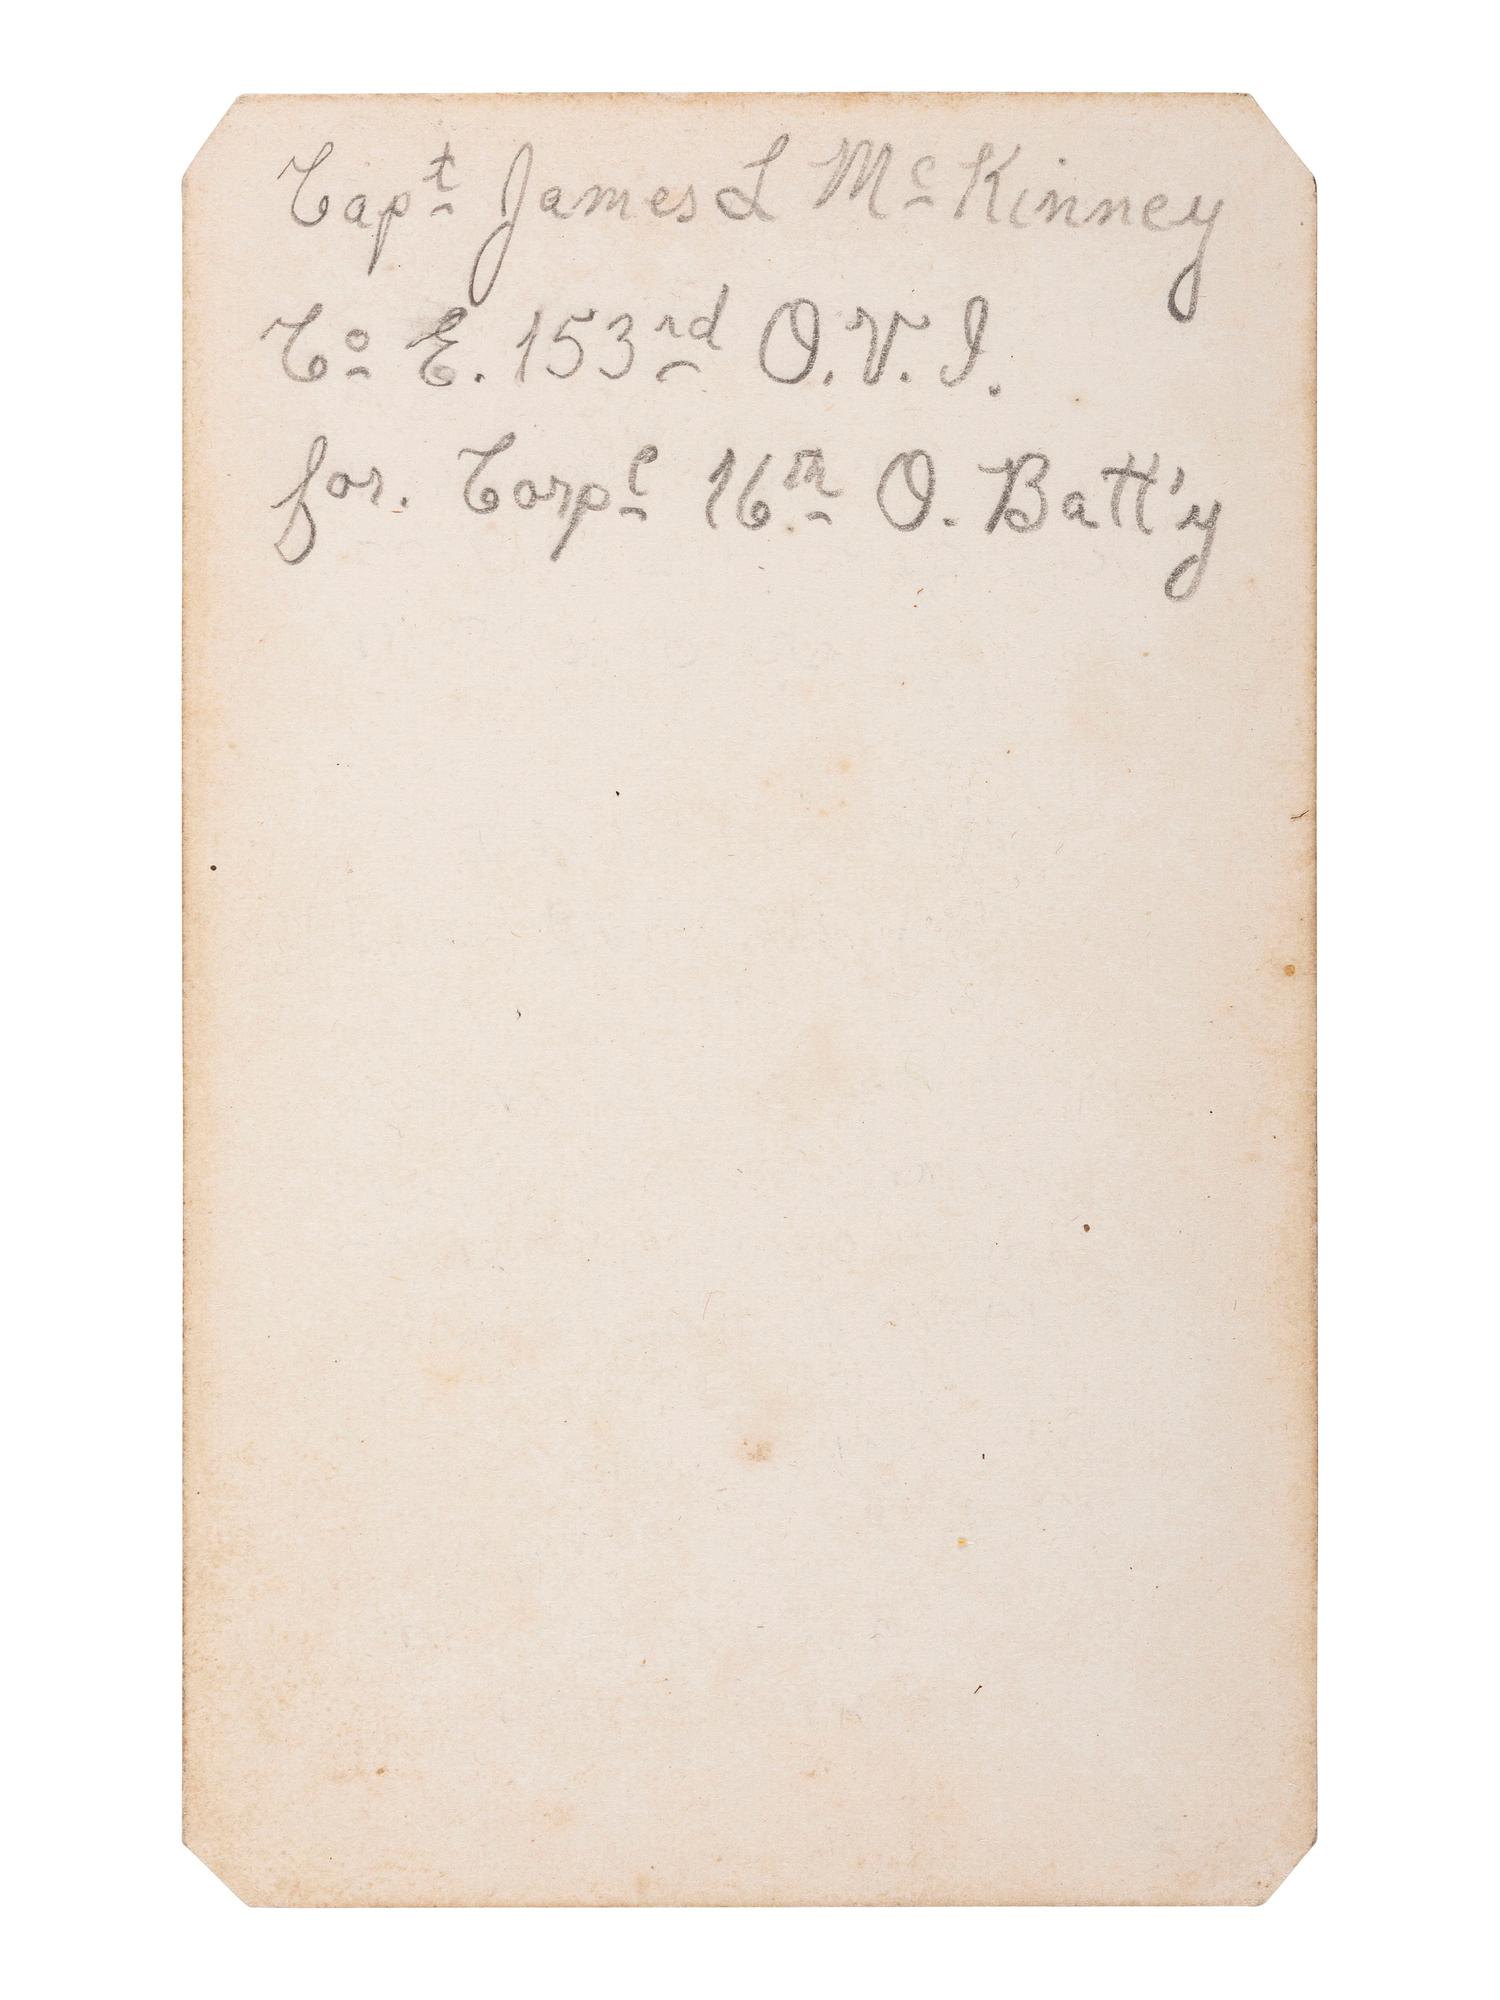 Capt James L McKinney
Co E. 153rd O.V.I.
for. Corpl 16th O. Batt'y